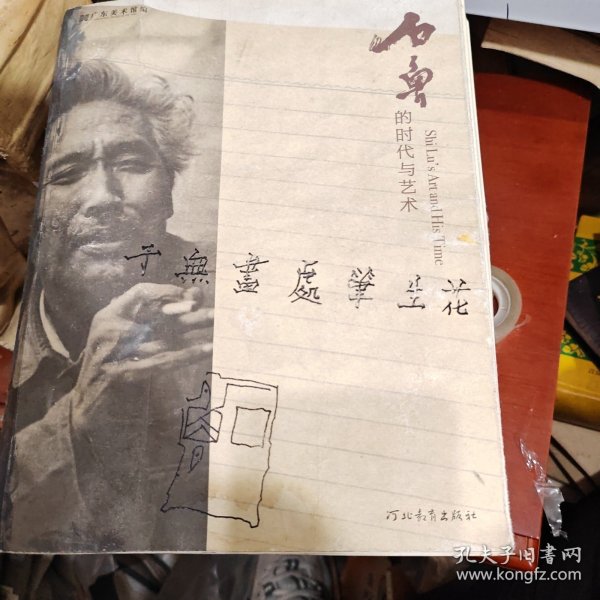 广东美术馆编
石鲁
的时代与艺术
Shi Lu's Art and His Time
于無畫處筆生花
河北教育出版社
孔夫子旧书网
www.kongfz.com